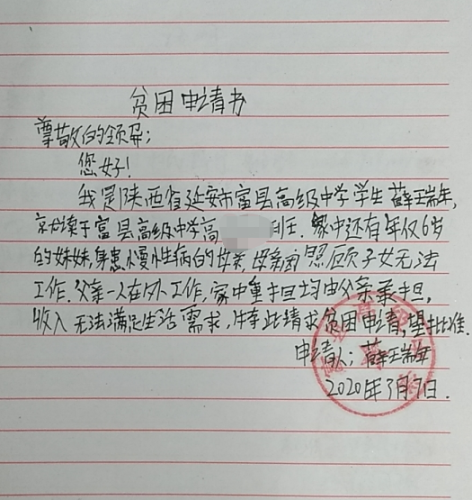 贫困申请书
尊敬的领导:
您好!
我是陕西省延安市富县高级中学学生薛瑞年,
就读于富县高级中学高 班. 家中还有年仅6岁
的妹妹,身患慢性病的母亲,母亲因照顾子女无法
工作.父亲一人在外工作,家中重担均由父亲承担,
收入无法满足生活需求,特此请求贫困申请,望批准.
申请人:薛瑞年
2020年3月9日.